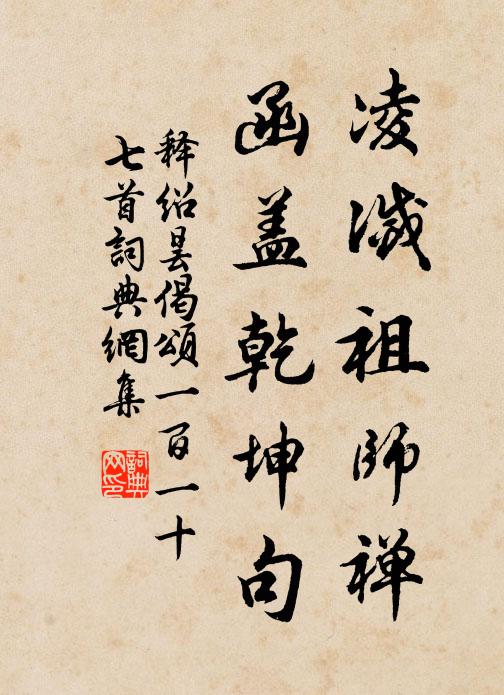 凌滅祖師禅
函盖乾坤句
释绍昙偈頌一百一十
七首詞典網集
詞典
网印